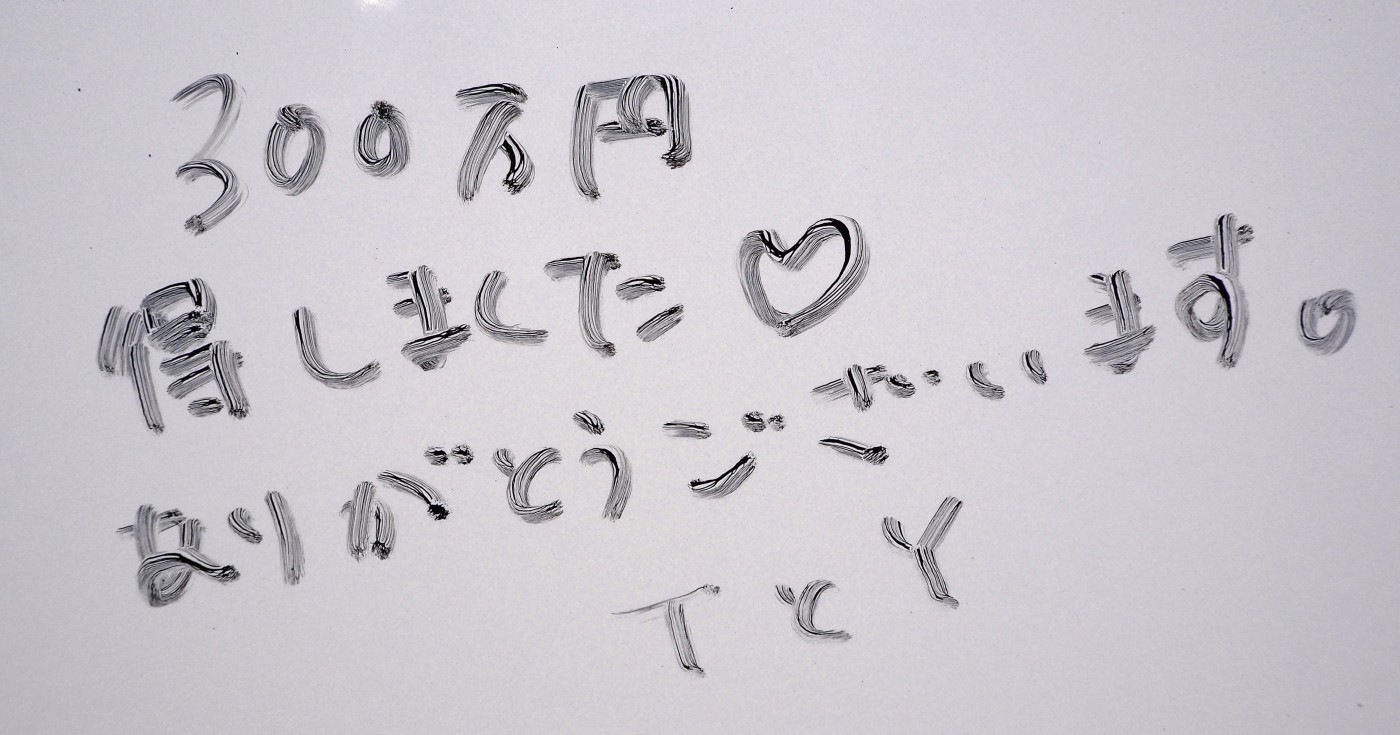 300万円
得しました♡
ありがとうございます。
TとY